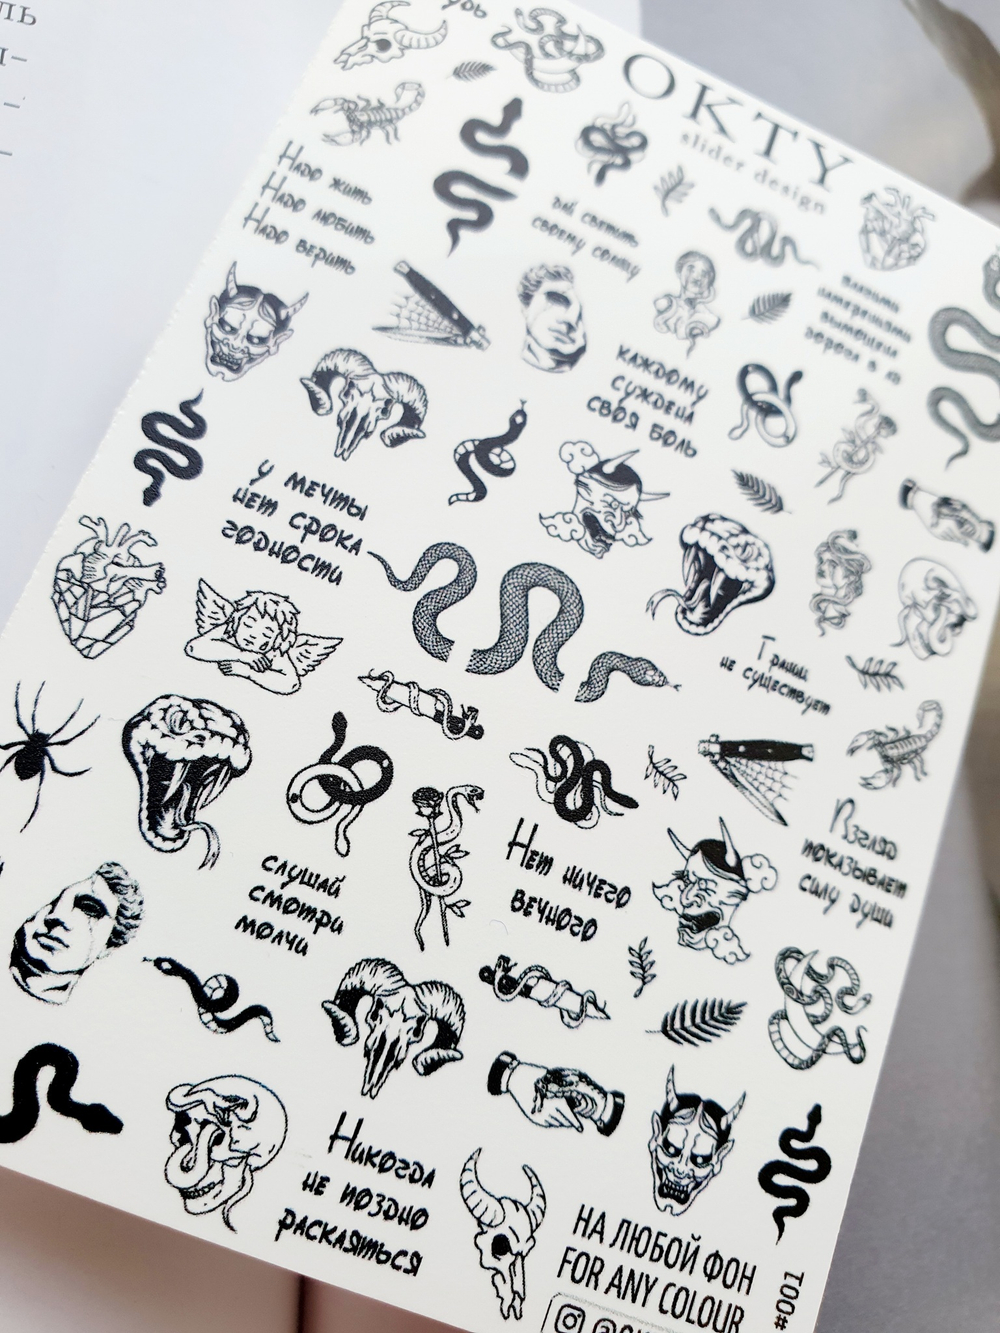 OKTY
slider design
Надо жить
Надо любить
Надо верить
дай светить
своему солнцу
каждому
суждена
своя боль
у мечты
нет срока
годности
Грани
не существует
слушай
смотри
молчи
Нет ничего
вечного
Взгляд
показывает
силу души
Никогда
не поздно
раскаяться
НА ЛЮБОЙ ФОН
FOR ANY COLOUR
#001